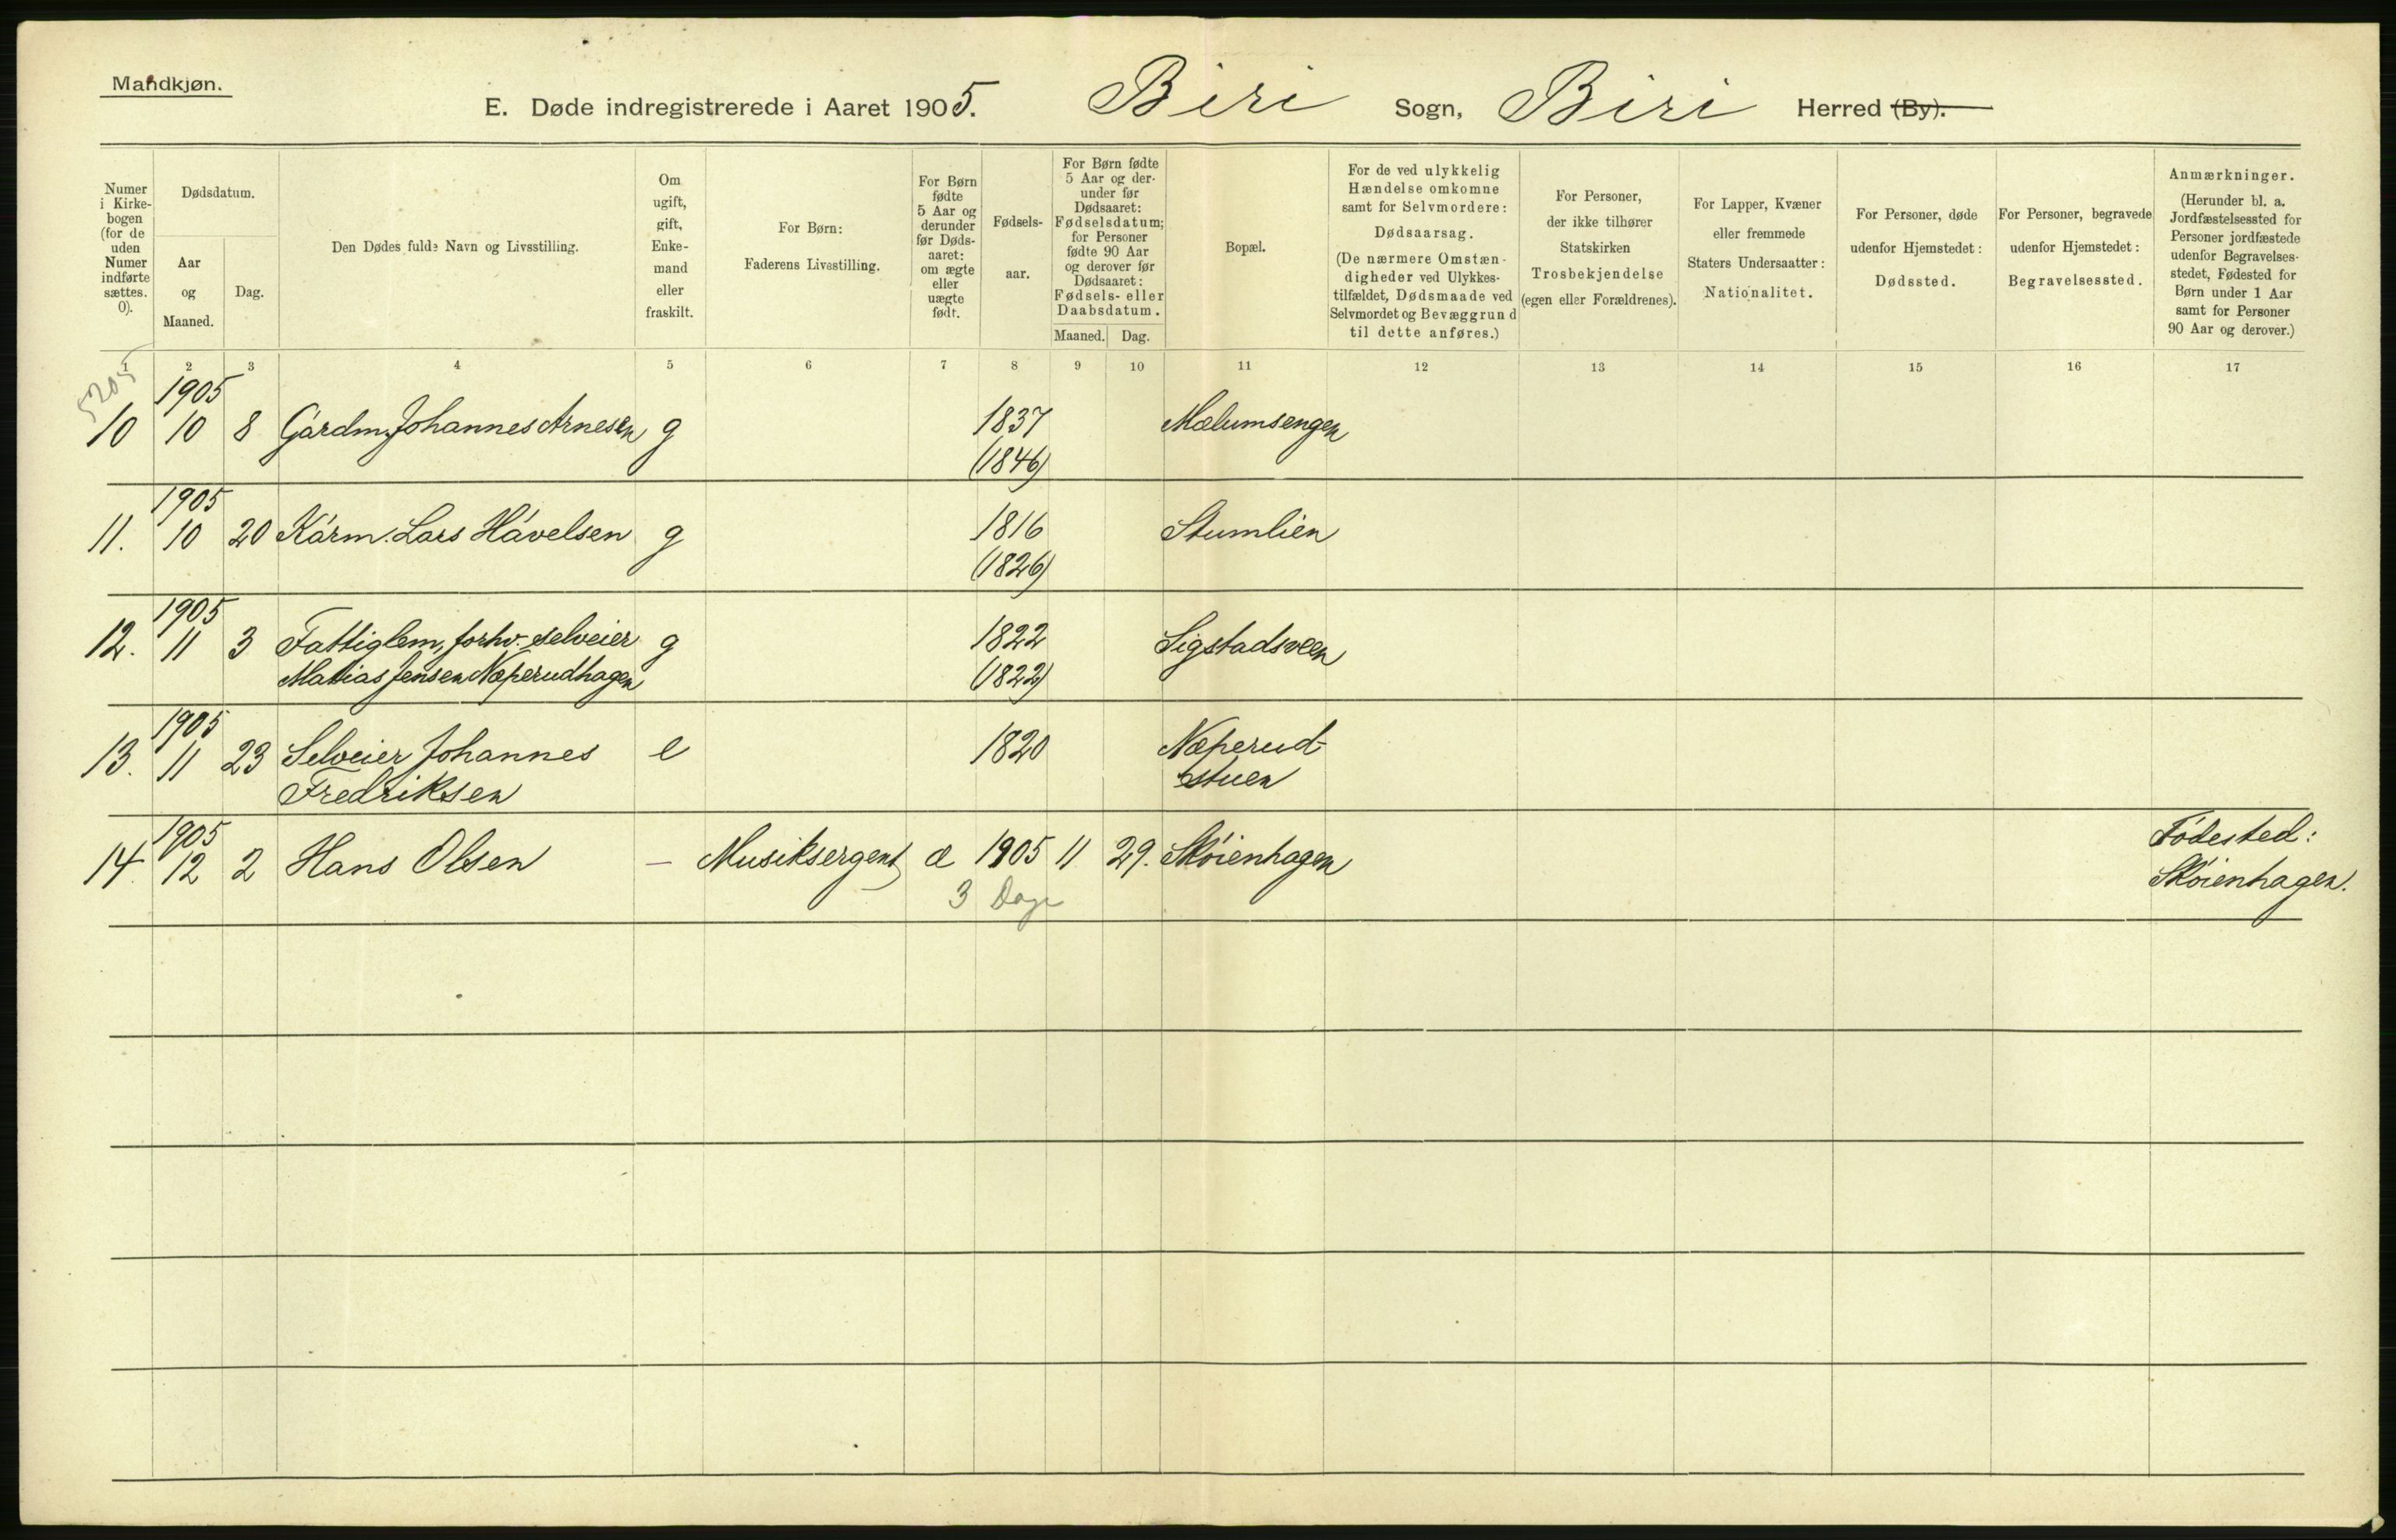 Mandkjøn.
E. Døde indregistrerede i Aaret 1905. Biri Sogn, Biri Herred (By).
Numer i Kirke-bogen (for de uden Numer indførte sættes. 0).
Dødsdatum.
Aar og Maaned.
Dag.
Den Dødes fulde Navn og Livsstilling.
Om ugift, gift, Enke-mand eller fraskilt.
For Børn:
Faderens Livsstilling.
For Børn fødte 5 Aar og derunder før Døds-aaret: om ægte eller uægte født.
Fødsels-aar.
For Børn fødte 5 Aar og der-under før Dødsaaret: Fødselsdatum; for Personer fødte 90 Aar og derover før Dødsaaret: Fødsels- eller Daabsdatum.
Maaned. Dag.
Bopæl.
For de ved ulykkelig Hændelse omkomne samt for Selvmordere: Dødsaarsag. (De nærmere Omstæn-digheder ved Ulykkes-tilfældet, Dødsmaade ved Selvmordet og Bevæggrund til dette anføres.)
For Personer, der ikke tilhører Statskirken Trosbekjendelse (egen eller Forældrenes).
For Lapper, Kvæner eller fremmede Staters Undersaatter: Nationalitet.
For Personer, døde udenfor Hjemstedet: Dødssted.
For Personer, begravede udenfor Hjemstedet: Begravelsessted.
Anmærkninger. (Herunder bl. a. Jordfæstelsessted for Personer jordfæstede udenfor Begravelses-stedet, Fødested for Børn under 1 Aar samt for Personer 90 Aar og derover.)
1 2 3 4 5 6 7 8 9 10 11 12 13 14 15 16 17
5205
1905
10 10 8 Gårdm. Johannes Arnesen g 1837 Mælumsengen
(1846)
1905
11. 10 20 Kårm. Lars Håvelsen g 1816 Stumlien
(1826)
1905
12. 11 3 Fattiglem, forhv. selveier g 1822 Sigstadsveen
Matias Jensen Næperudhagen (1822)
1905
13. 11 23 Selveier Johannes e 1820 Næperud-
Fredriksen stuen
1905 Fødested:
14. 12 2 Hans Olsen — Musiksergent æ 1905 11 29. Skøienhagen Skøienhagen.
3 Dage